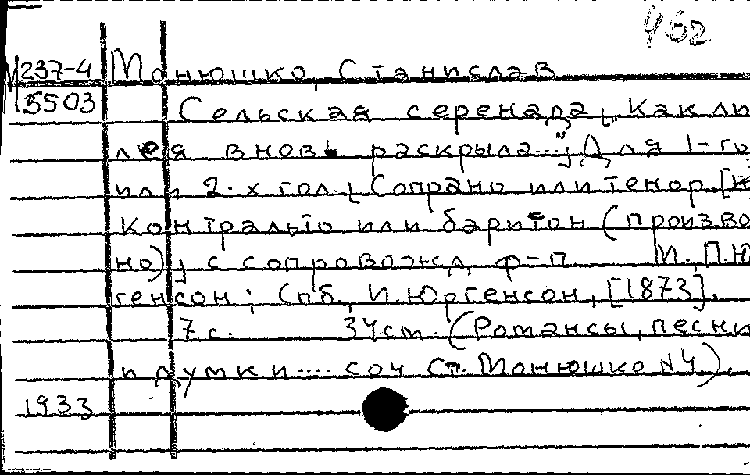 М237-4 Монюшко, Станислав
5503 Сельская серенада, "Как ли
лея вновь раскрыла..."; Для 1-го
или 2-х гол.; Сопрано или тенор [и
контральто или баритон (произво
но); с сопровожд. ф-п. М. П. Ю
генсон; Спб., И. Юргенсон, [1873].
7 с. 34 см. (Романсы, песни
и думки.... соч. Ст. Монюшко N 4).
1933